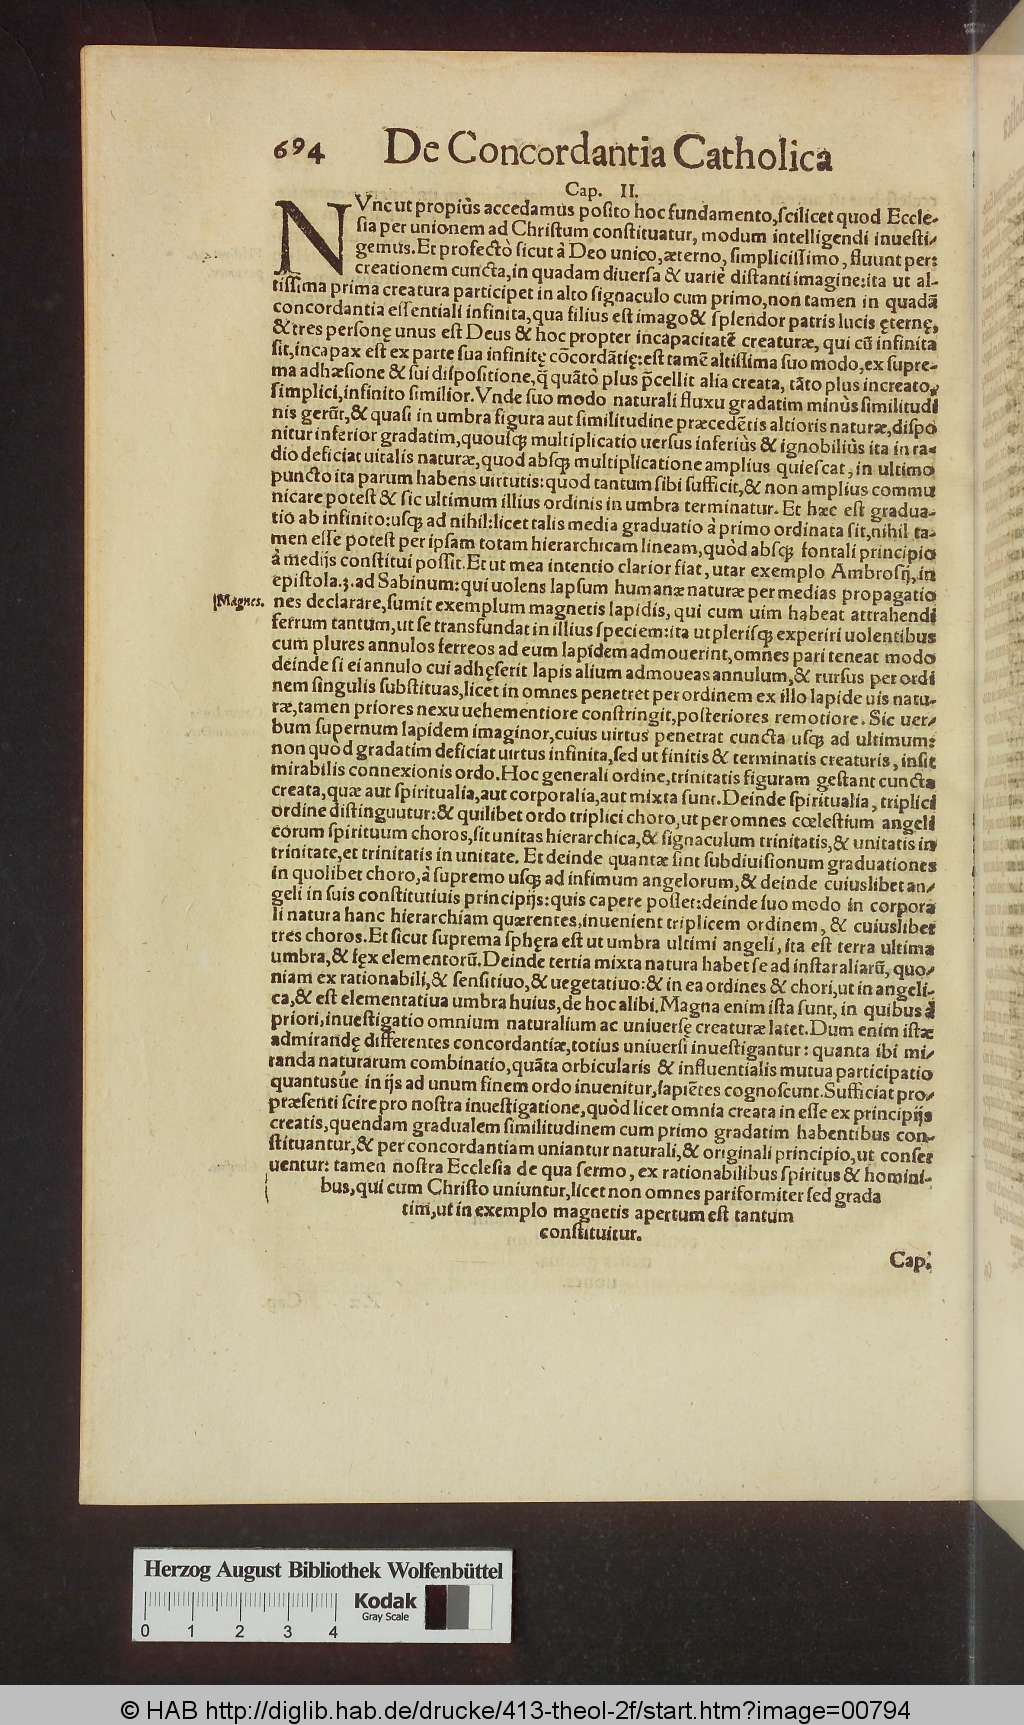 694 De Concordantia Catholica
Cap. II.
NVnc ut propiùs accedamus posito hoc fundamento, scilicet quod Eccle-
sia per unionem ad Christum constituatur, modum intelligendi inuesti/
gemus. Et profectò sicut à Deo unico, æterno, simplicissimo, fluunt per:
creationem cuncta, in quadam diuersa & uarie distanti imagine: ita ut al-
tissima prima creatura participet in alto signaculo cum primo, non tamen in quadã
concordantia essentiali infinita, qua filius est imago & splendor patris lucis ęternę,
& tres personę unus est Deus & hoc propter incapacitatẽ creaturæ, qui cũ infinita
sit, incapax est ex parte sua infinitę cõcordãtię: est tamẽ altissima suo modo, ex supre-
ma adhæsione & sui dispositione, q̃ quãtò plus p̃cellit alia creata, tãto plus increato,
simplici, infinito similior. Vnde suo modo naturali fluxu gradatim minùs similitudi
nis gerũt, & quasi in umbra figura aut similitudine præcedẽtis altioris naturæ, dispo
nitur inferior gradatim, quousq; multiplicatio uersus inferiùs & ignobiliùs ita in ra-
dio deficiat uitalis naturæ, quod absq; multiplicatione amplius quiescat, in ultimo
puncto ita parum habens uirtutis: quod tantum sibi sufficit, & non amplius commu
nicare potest & sic ultimum illius ordinis in umbra terminatur. Et hæc est gradua-
tio ab infinito: usq; ad nihil: licet talis media graduatio à primo ordinata sit, nihil ta-
men esse potest per ipsam totam hierarchicam lineam, quòd absq; fontali principio
à medijs constitui possit. Et ut mea intentio clarior fiat, utar exemplo Ambrosij, in
epistola. 3. ad Sabinum: qui uolens lapsum humanæ naturæ per medias propagatio
Magnes. nes declarare, sumit exemplum magnetis lapidis, qui cum uim habeat attrahendi
ferrum tantum, ut se transfundat in illius speciem: ita ut plerisq; experiri uolentibus
cum plures annulos ferreos ad eum lapidem admouerint, omnes pari teneat modo
deinde si ei annulo cui adhęserit lapis alium admoueas annulum, & rursus per ordi
nem singulis substituas, licet in omnes penetret per ordinem ex illo lapide uis natu-
ræ, tamen priores nexu uehementiore constringit, posteriores remotiore. Sic uer/
bum supernum lapidem imaginor, cuius uirtus penetrat cuncta usq; ad ultimum:
non quòd gradatim deficiat uirtus infinita, sed ut finitis & terminatis creaturis, insit
mirabilis connexionis ordo. Hoc generali ordine, trinitatis figuram gestant cuncta
creata, quæ aut spiritualia, aut corporalia, aut mixta sunt. Deinde spiritualia, triplici
ordine distinguutur: & quilibet ordo triplici choro, ut per omnes cœlestium angeli
corum spirituum choros, sit unitas hierarchica, & signaculum trinitatis, & unitatis in
trinitate, et trinitatis in unitate. Et deinde quantæ sint subdiuisionum graduationes
in quolibet choro, à supremo usq; ad infimum angelorum, & deinde cuiuslibet an/
geli in suis constitutiuis principijs: quis capere posset: deinde suo modo in corpora
li natura hanc hierarchiam quærentes, inuenient triplicem ordinem, & cuiuslibet
tres choros. Et sicut suprema sphęra est ut umbra ultimi angeli, ita est terra ultima
umbra, & fęx elementorũ. Deinde tertia mixta natura habet se ad instar aliarũ, quo/
niam ex rationabili, & sensitiuo, & uegetatiuo: & in ea ordines & chori, ut in angeli-
ca, & est elementatiua umbra huius, de hoc alibi. Magna enim ista sunt, in quibus à
priori, inuestigatio omnium naturalium ac uniuersę creaturæ latet. Dum enim istæ
admirandę differentes concordantiæ, totius uniuersi inuestigantur: quanta ibi mi/
randa naturarum combinatio, quãta orbicularis & influentialis mutua participatio
quantusúe in ijs ad unum finem ordo inuenitur, sapiẽtes cognoscunt. Sufficiat pro/
præsenti scire pro nostra inuestigatione, quòd licet omnia creata in esse ex principijs
creatis, quendam gradualem similitudinem cum primo gradatim habentibus con-
stituantur, & per concordantiam uniantur naturali, & originali principio, ut conser
uentur: tamen nostra Ecclesia de qua sermo, ex rationabilibus spiritus & homini-
bus, qui cum Christo uniuntur, licet non omnes pariformiter sed grada
tim, ut in exemplo magnetis apertum est tantum
constituitur.
Cap.
Herzog August Bibliothek Wolfenbüttel
0 1 2 3 4 Kodak Gray Scale
© HAB http://diglib.hab.de/drucke/413-theol-2f/start.htm?image=00794